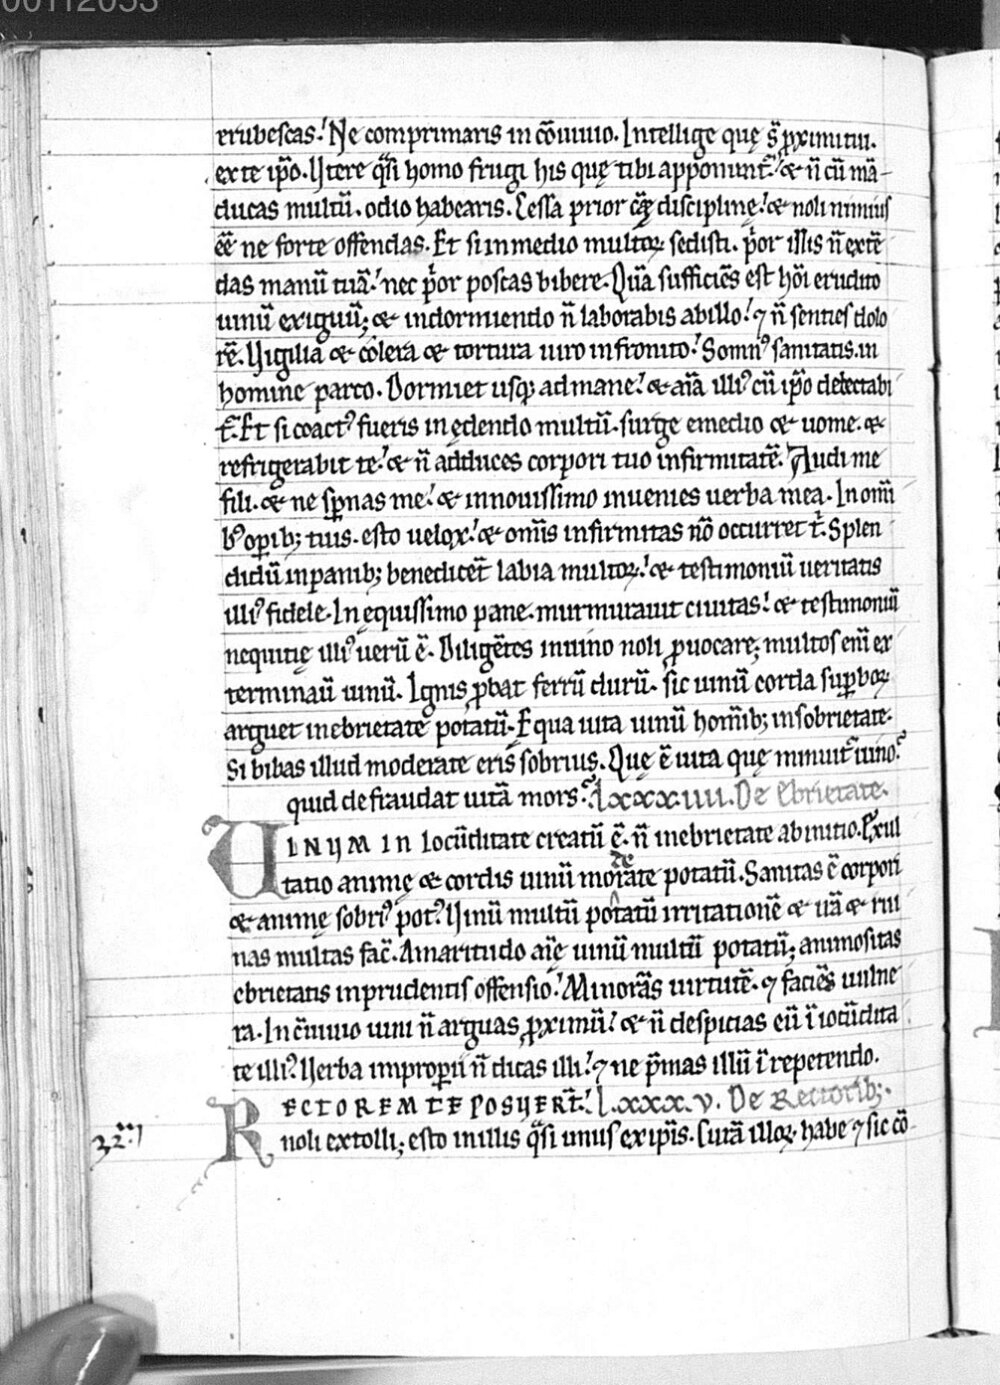 00112053
erubescas. Ne comprimaris in cōuiuio. Intellige quę s̄ proximi tui.
ex te ip̄o. Utere q̄si homo frugi his quę tibi apponunt᷑. & n̄ cū mā-
ducas multū. odio habearis. Cessa prior cā disciplinę. & noli nimius
ēē ne forte offendas. Et si in medio multoꝝ sedisti. p̍or illis n̄ extē
das manū tuā. nec p̍or poscas bibere. Quā sufficiēs est hōi erudito
uinū exiguū; & in dormiendo n̄ laborabis ab illo. ⁊ n̄ senties dolo
rē. Uigilia & colera & tortura uiro infrunito. Somnꝰ sanitatis. in
homine parco. Dormiet usqꝫ ad mane. & aīa illiꝰ cū ip̄o delectabi
t᷑. Et si coactꝰ fueris in ędendo multū. surge e medio & uome. &
refrigerabit te. & n̄ adduces corpori tuo infirmitatē. Audi me
fili. & ne sp̄nas me. & in nouissimo inuenies uerba mea. In om̄i
bꝰ oꝑibꝫ tuis. esto uelox. & om̄is infirmitas nō occurret t̍. Splen
didū in panibꝫ benedicēt labia multoꝝ. & testimoniū ueritatis
illiꝰ fidele. In nequissimo pane. murmurauit ciuitas. & testimoniū
nequitię illiꝰ uerū ē. Diligētes in uino noli ꝓuocare; multos eni᷑ ex
terminau᷑ uinū. Ignis ꝓbat ferrū durū. sic uinū corda suꝑboꝝ
arguet in ebrietate potatū. Equa uita uinū hom̄ibꝫ in sobrietate.
Si bibas illud moderate eris sobrius. Quę ē uita quę minuit᷑ uino?
quid defraudat uitā mors? Lxxx.iiii. De Ebrietate.
UINUM IN iocūditate creatū ē. n̄ in ebrietate ab initio. Exul
tatio animę & cordis uinū moderate potatū. Sanitas ē corpori
& animę sobriꝰ potꝰ. Uinū multū potatū irritationē & irā & rui
nas multas fac̄. Amaritudo aīę uinū multū potatū; animositas
ebrietatis inprudentis offensio. Minorās uirtutē. ⁊ faciēs uulne
ra. In cōuiuio uini n̄ arguas ꝓximū. & n̄ despicias eū ī iocūdita
te illiꝰ. Uerba improꝑii n̄ dicas illi. ⁊ ne p̄mas illū ī repetendo.
RECTOREM TE POSUERT᷑. Lxxx.v. De Rectoribꝫ.
noli extolli; esto in illis q̄si unus ex ip̄is. Curā illoꝝ habe ⁊ sic cō-